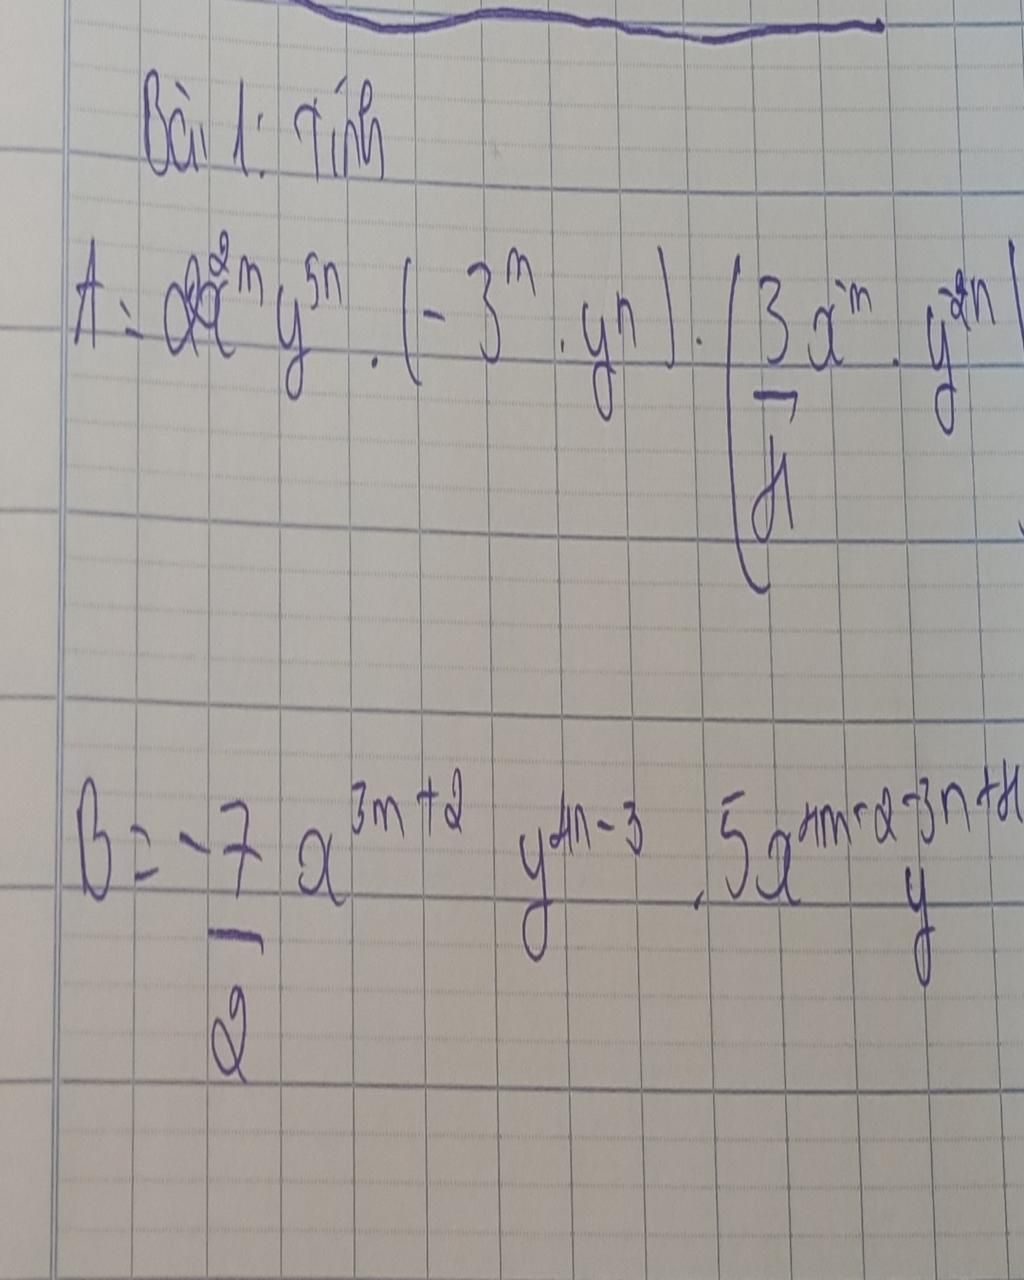 Bài 1: Tính
A = 2x^{2m} y^{5n} . (-3^m . y^n) . (\frac{3}{4} x^m . y^{2n})
B = \frac{-7}{2} x^{3m+2} y^{4n-3} . 5x^{4m-2} y^{-3n+4}